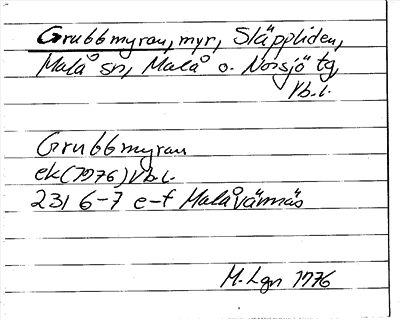 Grubbmyran, myr, Släppliden,
Malå sn, Malå o. Norsjö tg,
Vb.l.
Grubbmyran
ek (1976) Vb.l.
231 6-7 e-f Malåvännäs
M. Lgn 1976